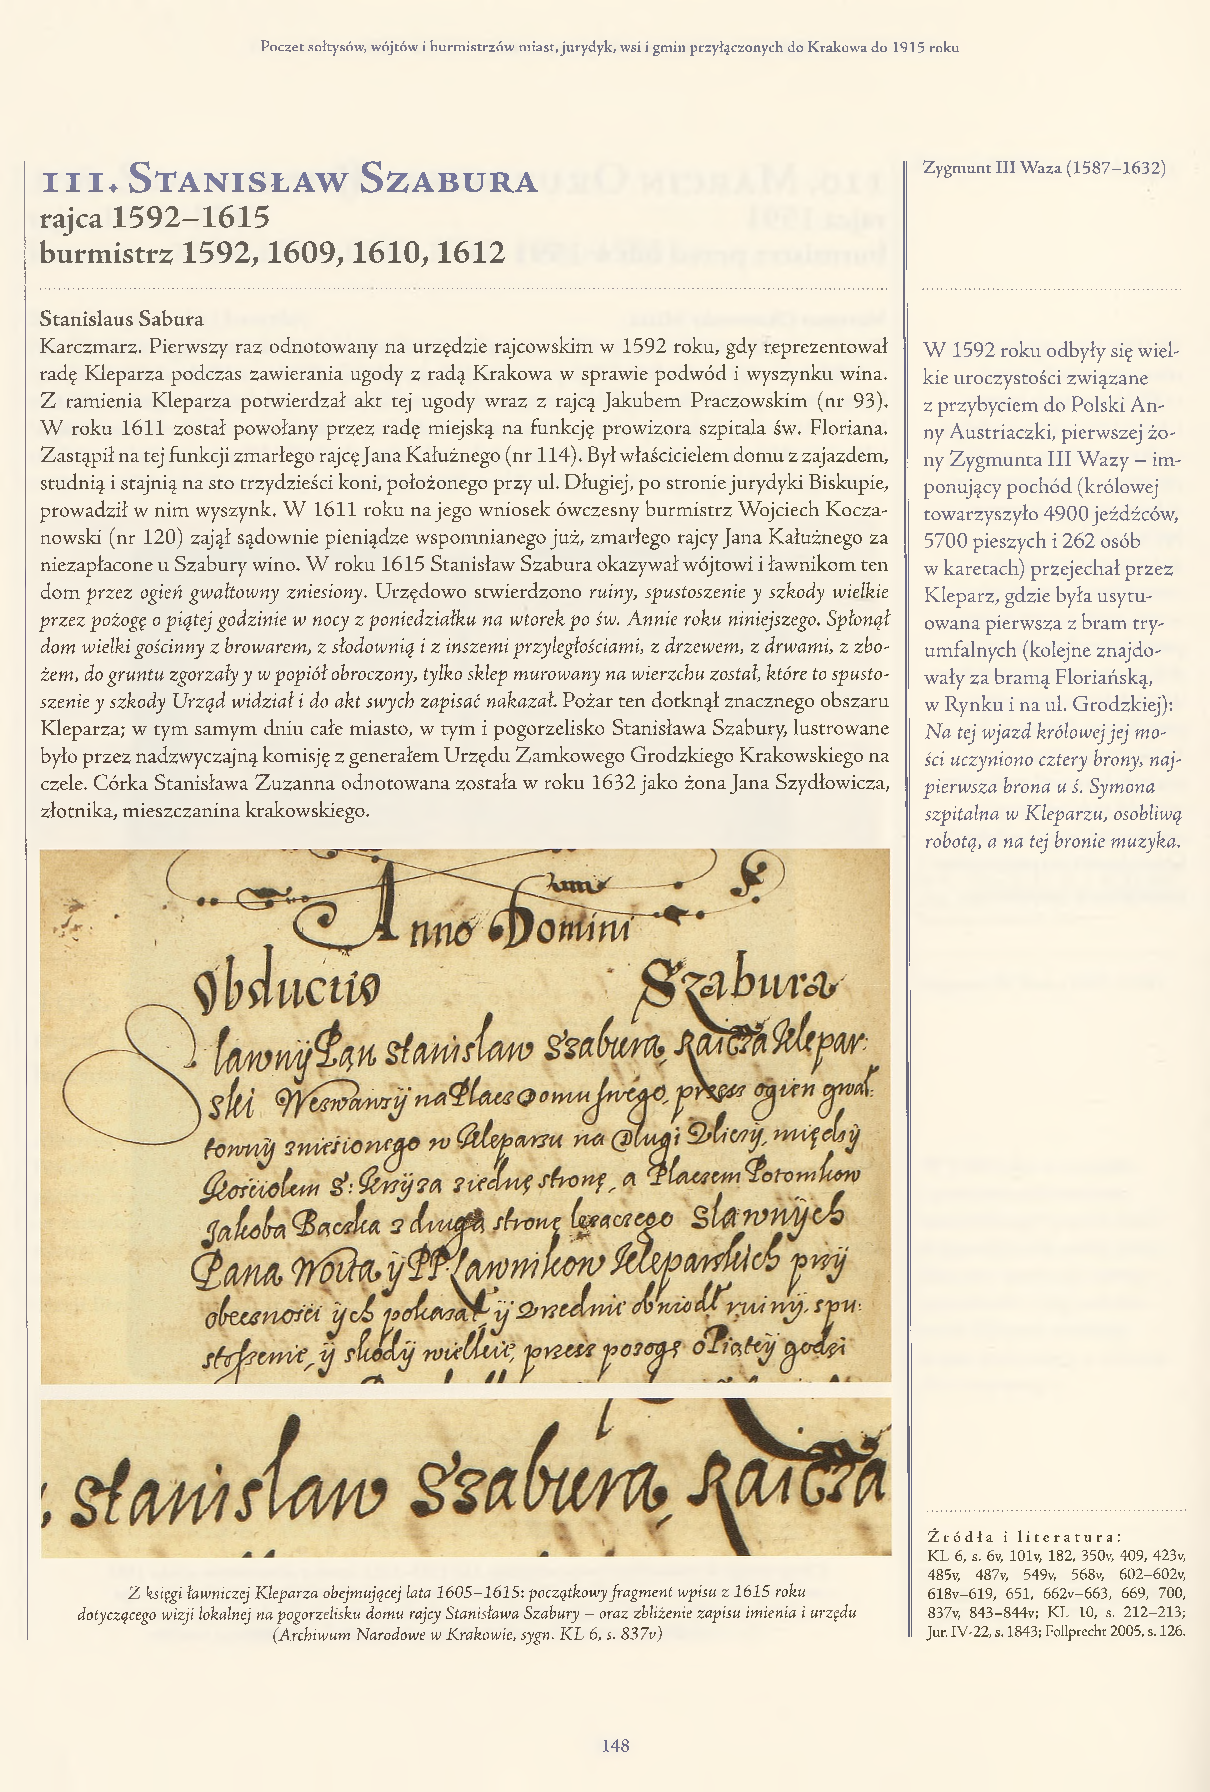 Poczet sołtysów, wójtów i burmistrzów miast, jurydyk, wsi i gmin przyłączonych do Krakowa do 1915 roku
111. Stanisław Szabura
rajca 1592–1615
burmistrz 1592, 1609, 1610, 1612
Stanislaus Sabura
Karczmarz. Pierwszy raz odnotowany na urzędzie rajcowskim w 1592 roku, gdy reprezentował
radę Kleparza podczas zawierania ugody z radą Krakowa w sprawie podwód i wyszynku wina.
Z ramienia Kleparza potwierdzał akt tej ugody wraz z rajcą Jakubem Praczowskim (nr 93).
W roku 1611 został powołany przez radę miejską na funkcję prowizora szpitala św. Floriana.
Zastąpił na tej funkcji zmarłego rajcę Jana Kałużnego (nr 114). Był właścicielem domu z zajazdem,
studnią i stajnią na sto trzydzieści koni, położonego przy ul. Długiej, po stronie jurydyki Biskupie,
prowadził w nim wyszynk. W 1611 roku na jego wniosek ówczesny burmistrz Wojciech Kocza-
nowski (nr 120) zajął sądownie pieniądze wspomnianego już, zmarłego rajcy Jana Kałużnego za
niezapłacone u Szabury wino. W roku 1615 Stanisław Szabura okazywał wójtowi i ławnikom ten
dom przez ogień gwałtowny zniesiony. Urzędowo stwierdzono ruiny, spustoszenie y szkody wielkie
przez pożogę o piątej godzinie w nocy z poniedziałku na wtorek po św. Annie roku niniejszego. Spłonął
dom wielki gościnny z browarem, z słodownią i z inszemi przyległościami, z drzewem, z drwami, z zbo-
żem, do gruntu zgorzały y w popiół obroczony, tylko sklep murowany na wierzchu został, które to spusto-
szenie y szkody Urząd widział i do akt swych zapisać nakazał. Pożar ten dotknął znacznego obszaru
Kleparza; w tym samym dniu całe miasto, w tym i pogorzelisko Stanisława Szabury, lustrowane
było przez nadzwyczajną komisję z generałem Urzędu Zamkowego Grodzkiego Krakowskiego na
czele. Córka Stanisława Zuzanna odnotowana została w roku 1632 jako żona Jana Szydłowicza,
złotnika, mieszczanina krakowskiego.
Anno Domini
Obductio Szabura
Slawny Pan Stanislaw Szabura, Raicza Klepar:
ski Wezwawszy na Placz Domu swego, przez ogien gwał:
towny zniesionego w Kleparzu na Długi Uliczy, między
Kościolem S: Krzyza z iednę stronę, a Placzem Potomkow
Jakoba Baczka z drugą stronę lezaczego Slawnych
Pana Woita y PP. Lawnikow Kleparskich przy
obecznosci ych pokazał, y Urzednie obwiodł ruiny, spu:
stoszenie, y skody wielkie, przez pozogę o Piątey godzi
Stanislaw Szabura, Raicza
Z księgi ławniczej Kleparza obejmującej lata 1605–1615: początkowy fragment wpisu z 1615 roku
dotyczącego wizji lokalnej na pogorzelisku domu rajcy Stanisława Szabury – oraz zbliżenie zapisu imienia i urzędu
(Archiwum Narodowe w Krakowie, sygn. KL 6, s. 837v)
Zygmunt III Waza (1587–1632)
W 1592 roku odbyły się wiel-
kie uroczystości związane
z przybyciem do Polski An-
ny Austriaczki, pierwszej żo-
ny Zygmunta III Wazy – im-
ponujący pochód (królowej
towarzyszyło 4900 jeźdźców,
5700 pieszych i 262 osób
w karetach) przejechał przez
Kleparz, gdzie była usytu-
owana pierwsza z bram try-
umfalnych (kolejne znajdo-
wały za bramą Floriańską,
w Rynku i na ul. Grodzkiej):
Na tej wjazd królowej jej mo-
ści uczyniono cztery brony, naj-
pierwsza brona u ś. Symona
szpitalna w Kleparzu, osobliwą
robotą, a na tej bronie muzyka.
Źródła i literatura:
KL 6, s. 6v, 101v, 182, 350v, 409, 423v,
485v, 487v, 549v, 568v, 602–602v,
618v–619, 651, 662v–663, 669, 700,
837v, 843–844v; KL 10, s. 212–213;
Jur. IV-22, s. 1843; Follprecht 2005, s. 126.
148